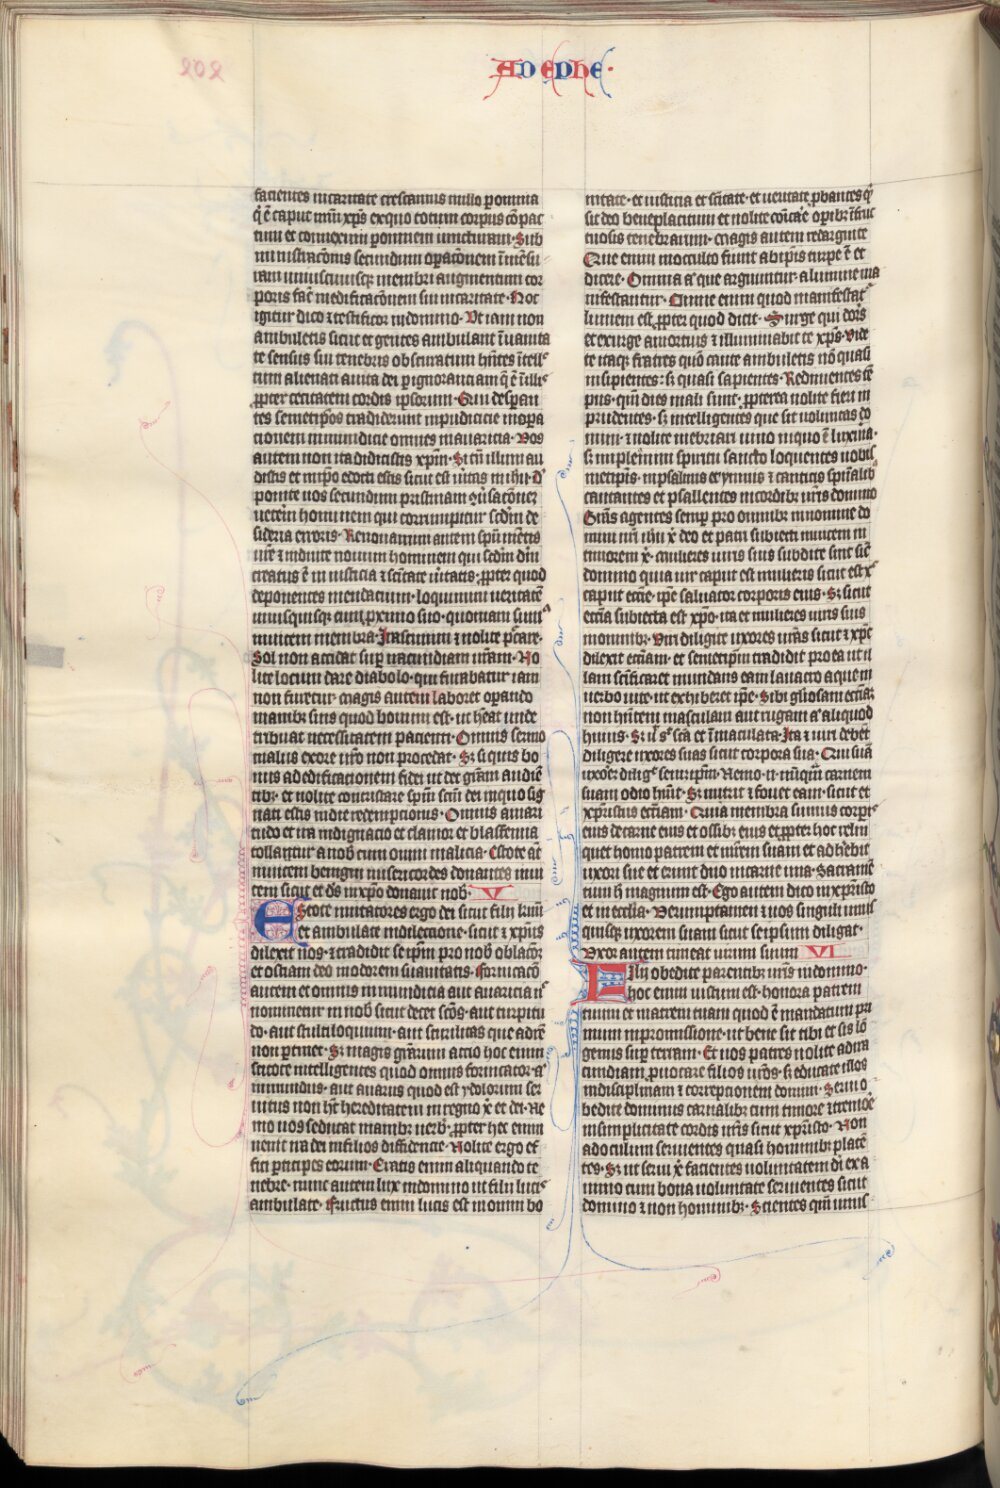 202
AD EPHE·
facientes in caritate crescamus in illo per omnia
q̄ ē caput n̄ru̅ xp̄s ex quo totum corpus co̅pac
tum et connexum per omnem iuncturam· Sub
ministrac̅onis secundum op̄ac̅onem i̅ me̅su
ram uniuscuiusq; membri augmentum cor
poris fac̄ in edificac̅onem sui in caritate· Hoc
igitur dico ⁊ testificor in domino· Ut iam non
ambuletis sicut et gentes ambulant i̅ uanita
te sensus sui tenebris obscuratum hn̅tes i̅tell̅c
tum alienati a uita dei p ignoranciam q̄ ē i̅ illis
ꝓpter cecitatem cordis ipsorum· Qui despan̅
tes semetip̅os tradiderunt inpudicicie in op̄a
cionem inmundicie omnes in auaricia· Vos
autem non ita didicistis xp̅m· Si t̅n illum au
distis et in ip̅o edocti estis sicut est u̅itas in ih̅u· D̅
ponite uos secundum pristinam 9̅u̅sac̅onez
ueterem hominem qui corrumpitur sc̅dm de
sideria erroris· Renouamini autem sp̅u m̅etis
ur̅e ⁊ induite nouum hominem qui sc̅dm d̅m
creatus ē in iusticia ⁊ sc̅itate u̅itatis· ꝓpter quod
deponentes mendacium· loquimini ueritate̅
unusquisq; cum ꝓximo suo· quoniam sum9
inuicem membra· Irascimini ⁊ nolite p̅care·
Sol non accidat sup iracundiam ur̅am· No
lite locum dare diabolo· qui furabatur iam
non furetur· magis autem laboret operando
manib; suis quod bonum est· ut h̅eat unde
tribuat necessitatem pacienti· Omnis sermo
malus ex ore ur̅o non procedat· Sz si quis bo
nus ad edificationem fidei ut det gr̅am audie̅
tib;· et nolite contristare sp̅m sc̅m dei in quo sig
nati estis in die redempcionis· Omnis amari
tudo et ira indignacio et clamor et blasfemia
tollantur a nob̅ cum omni malicia· Estote a̅t
inuicem benigni misericordes donantes inui
cem sicut et d̅s in xp̅o donauit nob̅· V
Estote imitatores ergo dei sicut filij k̅mi
et ambulate in dilectione· sicut ⁊ xp̅us
dilexit nos· ⁊ tradidit se ip̅m pro nob̅ oblac̅oz
et ostiam deo in odorem suauitatis· Fornicac̅o
autem et omnis inmundicia aut auaricia n̅c
nominetur in nob̅ sicut decet sc̅os· aut turpitu
do· aut stultiloquium· aut scurilitas que ad re̅
non p̅tinet· Sz magis gr̅arum actio hoc enim
scitote intelligentes quod omnis fornicator a̅
inmundus· aut auarus quod est ydolorum ser
uitus non h̅t hereditatem in regno x̅ et dei· Ne
mo uos seducat inanib; uerb̅· ꝓpter hec enim
uenit ira dei in filios diffidencie· Nolite ergo ef
fici p̅ticipes eorum· Eratis enim aliquando te
nebre· nunc autem lux in domino ut filij lucis
ambulate· Fructus enim lucis est in omni bo
nitate· et iusticia et sc̅itate· et ueritate ꝓbantes q̅
sit deo beneplacitum et nolite co̅ic̅ae op̅ib; i̅fruc
tuosis tenebrarum· magis autem redarguite
Que enim in occulto fiunt ab ip̅is turpe ē et
dicere· Omnia a̅ que arguuntur· a lumine ma
nifestantur· Omne enim quod manifestat̅
lumen est ꝓpter quod dicit· Surge qui dor̅s
et exurge a mortuis ⁊ illuminabit te xp̅s· Vide
te itaq; fratres quo̅ caute ambuletis no̅ quasi
insipientes: sz quasi sapientes· Redimentes te̅
pus· qm̅ dies mali sunt· ꝓpterea nolite fieri in
prudentes· sz intelligentes que sit uoluntas do
mini· ⁊ nolite inebriari uino in quo ē luxuria·
sz implemini spiritu sancto loquentes uobis
metip̅is· in psalmis et ymnis ⁊ canticis sp̅ualib;
cantantes et psallentes in cordib; ur̅is domino
Gr̅as agentes semp pro omnib; in nomine do
mini nr̅i ih̅u x̅ deo et patri subiecti inuicem in
timorem x̅· Mulieres uiris suis subdite sint sic̅
domino quia uir caput est mulieris sicut est x̅c
caput ecc̅ie· ip̅e saluator corporis eius· Sz sicut
ecc̅ia subiecta est xp̅o· ita et mulieres uiris suis
in omnib;· Viri diligite uxores ur̅as sicut ⁊ xp̅c
dilexit ecc̅iam· et semetip̅m tradidit pro ea ut il
lam sc̅ificaret mundans eam lauacro aque in
uerbo uite· ut exhiberet ip̅e· Sibi gl̅iosam ecc̅iaz
non hn̅tem maculam aut rugam a̅ aliquod
huius· Sz ut s̅ sc̅a et i̅maculata· Ita ⁊ uiri debe̅t
diligere uxores suas sicut corpora sua· Qui sua̅
uxore̅ dilig̅ seme̅ip̅m· Nemo n̅ u̅nq̅m carnem
suam odio hu̅it· Sz nutrit ⁊ fouet eam· sicut et
xp̅ristus ecc̅iam· Quia membra sumus corp̅is
eius de carne eius et ossib; eius et ꝓpter hoc relin
quet homo patrem et m̅rem suam et adh̅ebit
uxori sue et erunt duo in carne una· Sacrame̅
tum h̅ magnum est· Ego autem dico in xp̅risto
et in ecc̅lia· Verumptamen ⁊ uos singuli unus
quisq; uxorem suam sicut se ipsum diligat·
Uxor autem timeat uirum suum VI
Filij obedite parentib; ur̅is in domino·
hoc enim iustum est· honora patrem
tuum et matrem tuam quod ē mandatum pri
mum in promissione· ut bene sit tibi et sis lo̅
geuus sup terram· Et uos patres nolite ad ira
cundiam ꝓuocare filios ur̅os· sz educate illos
in disciplinam ⁊ correptionem domini· Serui o
bedite dominis carnalib; cum timore ⁊ tremo̅e
in simplicitate cordis ur̅is sicut xp̅risto· Non
ad oculum seruientes quasi hominib; place̅
tes· Sz ut serui x̅ facientes uoluntatem di̅ ex a
nimo cum bona uoluntate seruientes sicut
domino ⁊ non hominib;· Scientes qm̅ unus